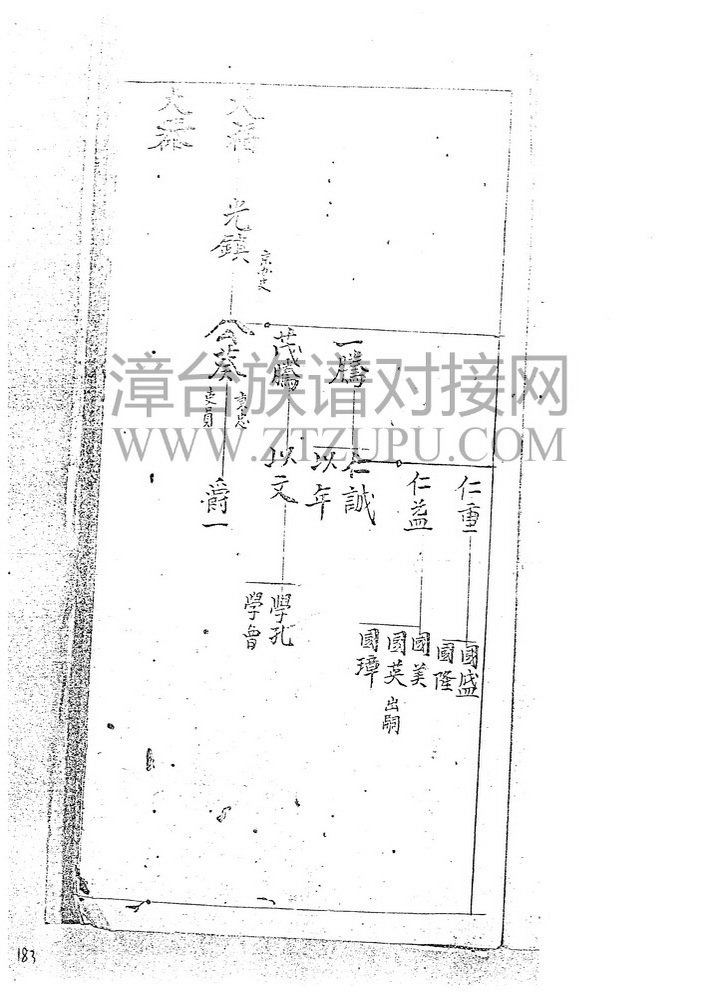 大禄
光鎮
一騰
茂騰
葵
吏員
仁重
仁益
仁誠
以年
以文
爵一
國盛
國隆
國美
國英 出嗣
國璋
學孔
學會
漳台族谱对接网
WWW.ZTZUPU.COM
183